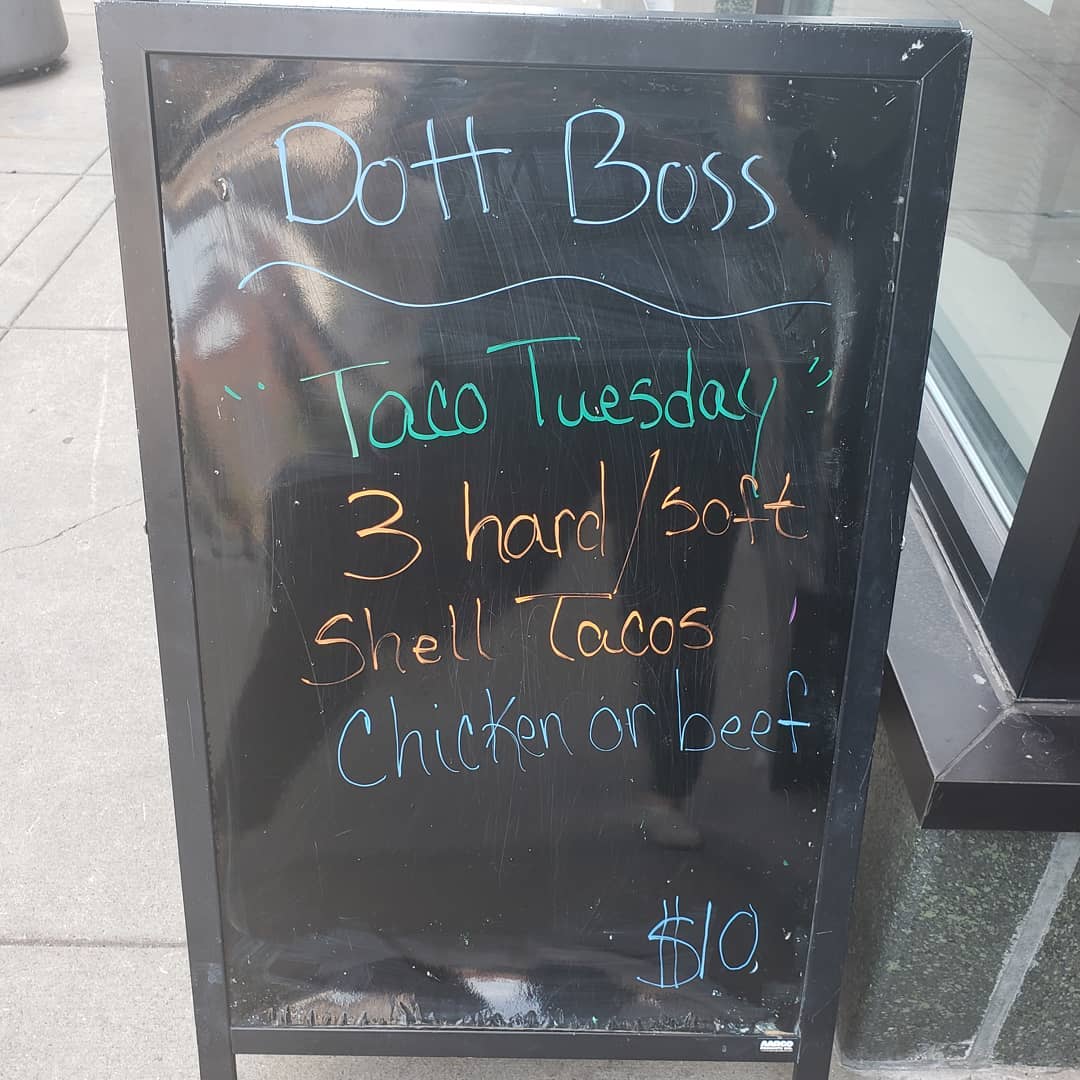 Dott Boss
"Taco Tuesday"
3 hard/soft
Shell Tacos
Chicken or beef
$10
AARCO